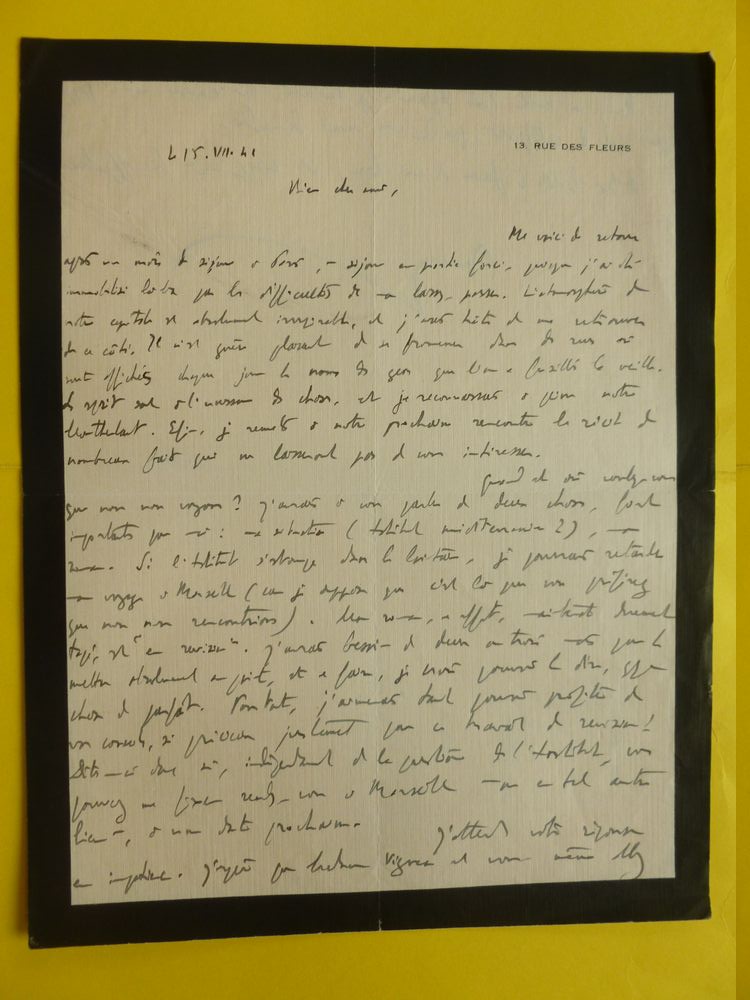 13, RUE DES FLEURS
L 15. VII. 41
Bien cher ami,
Me voici de retour
après un mois de séjour à Paris, séjour en partie forcé, puisque j'ai été
par les difficultés de passer. L'atmosphère de
notre capitale est absolument irrespirable, et j'avais hâte de me retrouver
de ce côté. Il n'est guère plaisant de se promener dans des rues où
sont affichés chaque jour les noms des gens que l'on a fusillés la veille.
et je reconnaissais à peine notre
Montherlant. Enfin, je remets à notre prochaine rencontre le récit de
nombreux faits qui ne laisseront pas de vous intéresser.
Quand et où voulez-vous
que nous nous voyions ? J'aurais à vous parler de deux choses, fort
importantes pour moi : ma situation (Institut méditerranéen ?), mon
roman. Si l'Institut s'estompe dans le lointain, je pourrais retarder
mon voyage à Marseille (car je suppose que c'est là que vous préférez
que nous nous rencontrions). Mon roman, en effet, maintenant dûment
tapé, est "en révision". J'aurais besoin de deux ou trois mois pour le
mettre absolument au point, et en faire, je crois pouvoir le dire, quelque
chose de parfait. Pourtant, j'aimerais tant pouvoir profiter de
vos conseils, si précieux justement pour ce travail de révision !
Dites-moi donc si, indépendamment de la question de l'Institut, vous
pouvez me fixer rendez-vous à Marseille ou en tel autre
lieu, à une date prochaine.
J'attends votre réponse
en impatience. J'espère que Madame et vous même